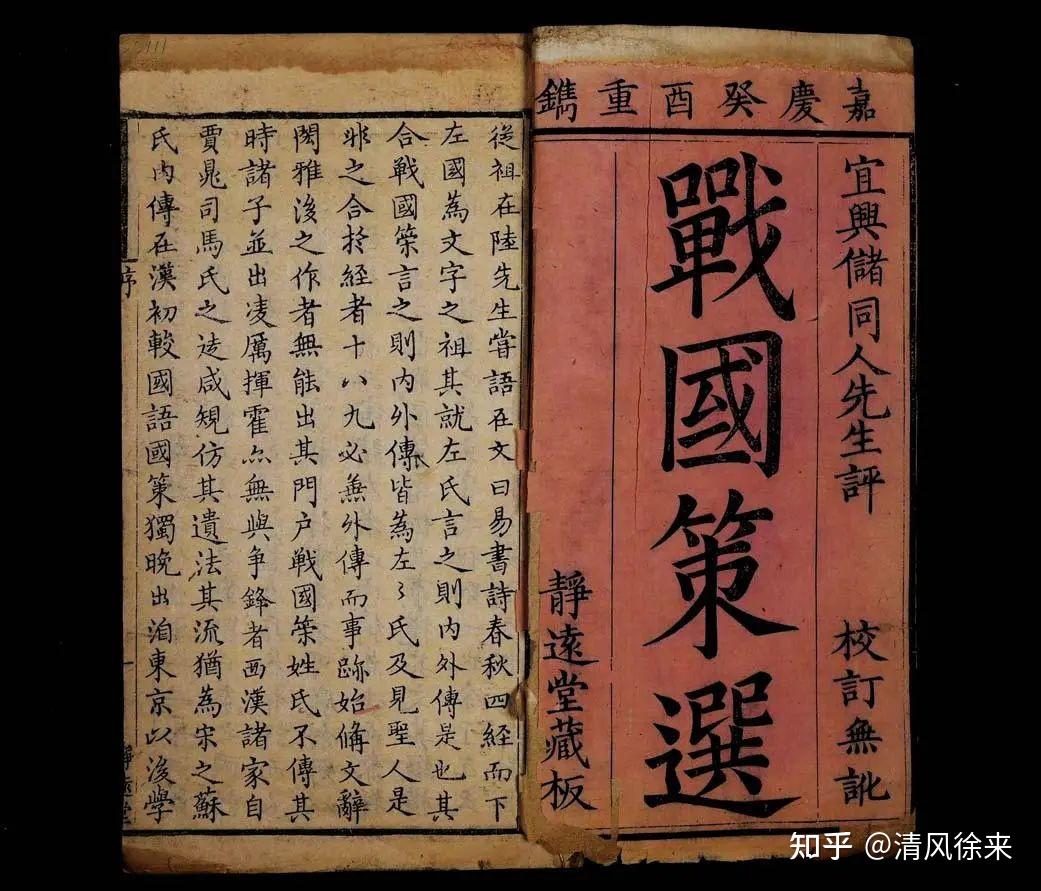 嘉慶癸酉重鐫
宜興儲同人先生評 校訂無訛
戰國策選
靜遠堂藏板
從祖在陸先生嘗語在文曰易書詩春秋四經而下
左國為文字之祖其就左氏言之則內外傳是也其
合戰國策言之則內外傳皆為左〻氏及見聖人是
非之合於經者十八九必無外傳而事跡始備文辭
閎雅後之作者無能出其門户戰國策姓氏不傳其
時諸子並出凌厲揮霍亦無與爭鋒者西漢諸家自
賈晁司馬氏之徒咸規仿其遺法其流猶為宋之蘇
氏內傳在漢初較國語國策獨晚出洎東京以後學
序
一
靜遠堂
知乎 @清风徐来